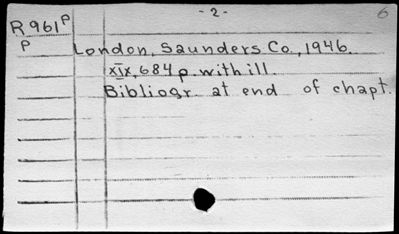 - 2 -
6
R961p
p
London, Saunders Co., 1946.
XIX, 684 p. with ill.
Bibliogr. at end of chapt.